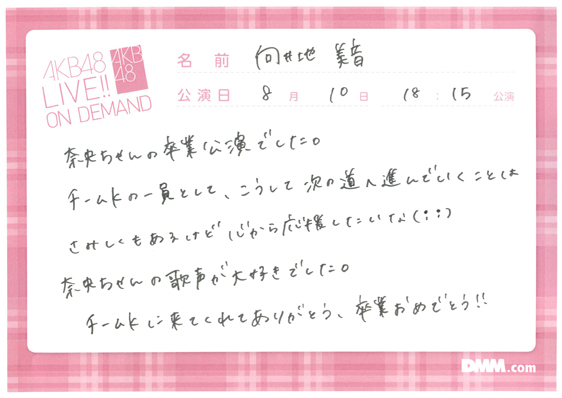 AKB48
LIVE!!
ON DEMAND
AKB
48
名前 向井地 美音
公演日 8月 10日 18:15 公演
奈央ちゃんの卒業公演でした。
チームKの一員として、こうして次の道へ進んでいくことは
さみしくもあるけど 心から応援したいな(;;)
奈央ちゃんの歌声が大好きでした。
チームKに来てくれてありがとう、卒業おめでとう!!
DMM.com